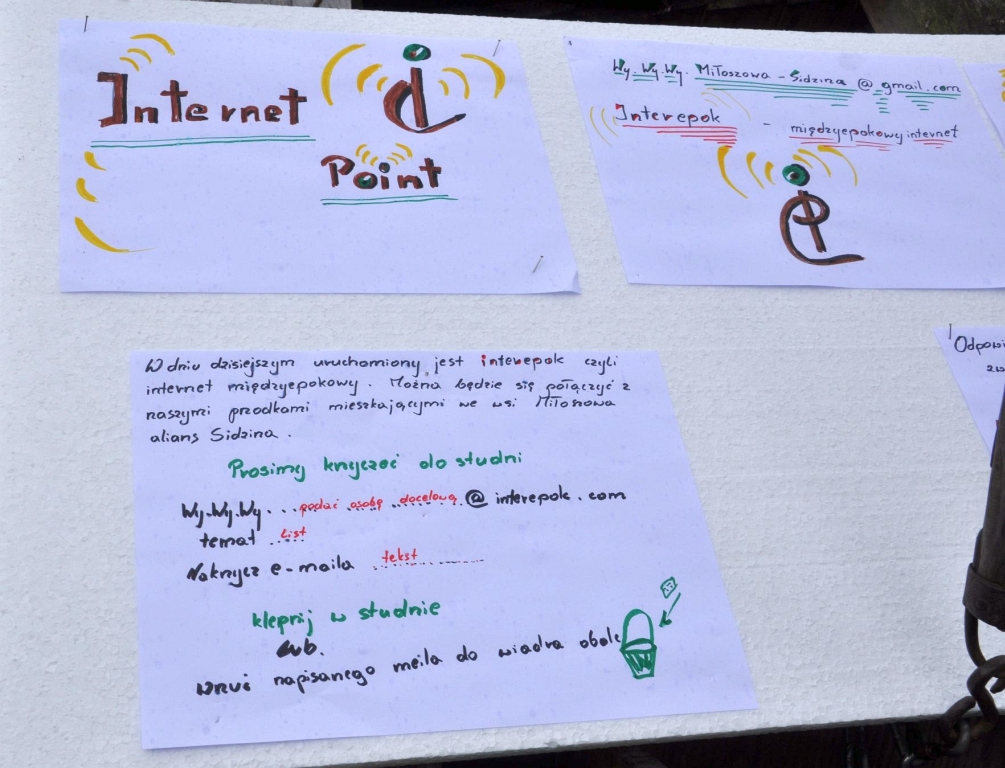 Internet
i
Point
Wy.Wy.Wy. Miłoszowa - Sidzina @ gmail.com
Interepok - międzyepokowy internet
W dniu dzisiejszym uruchomiony jest interepok czyli
internet międzyepokowy. Można będzie się połączyć z
naszymi przodkami mieszkającymi we wsi Miłoszowa
alians Sidzina.
Prosimy krzyczeć do studni
Wy.Wy.Wy... podać osobę docelową @ interepok.com
temat List
Nakrzycz e-maila tekst
kleprij w studnie
Lub.
wruć napisanego meila do wiadra obok